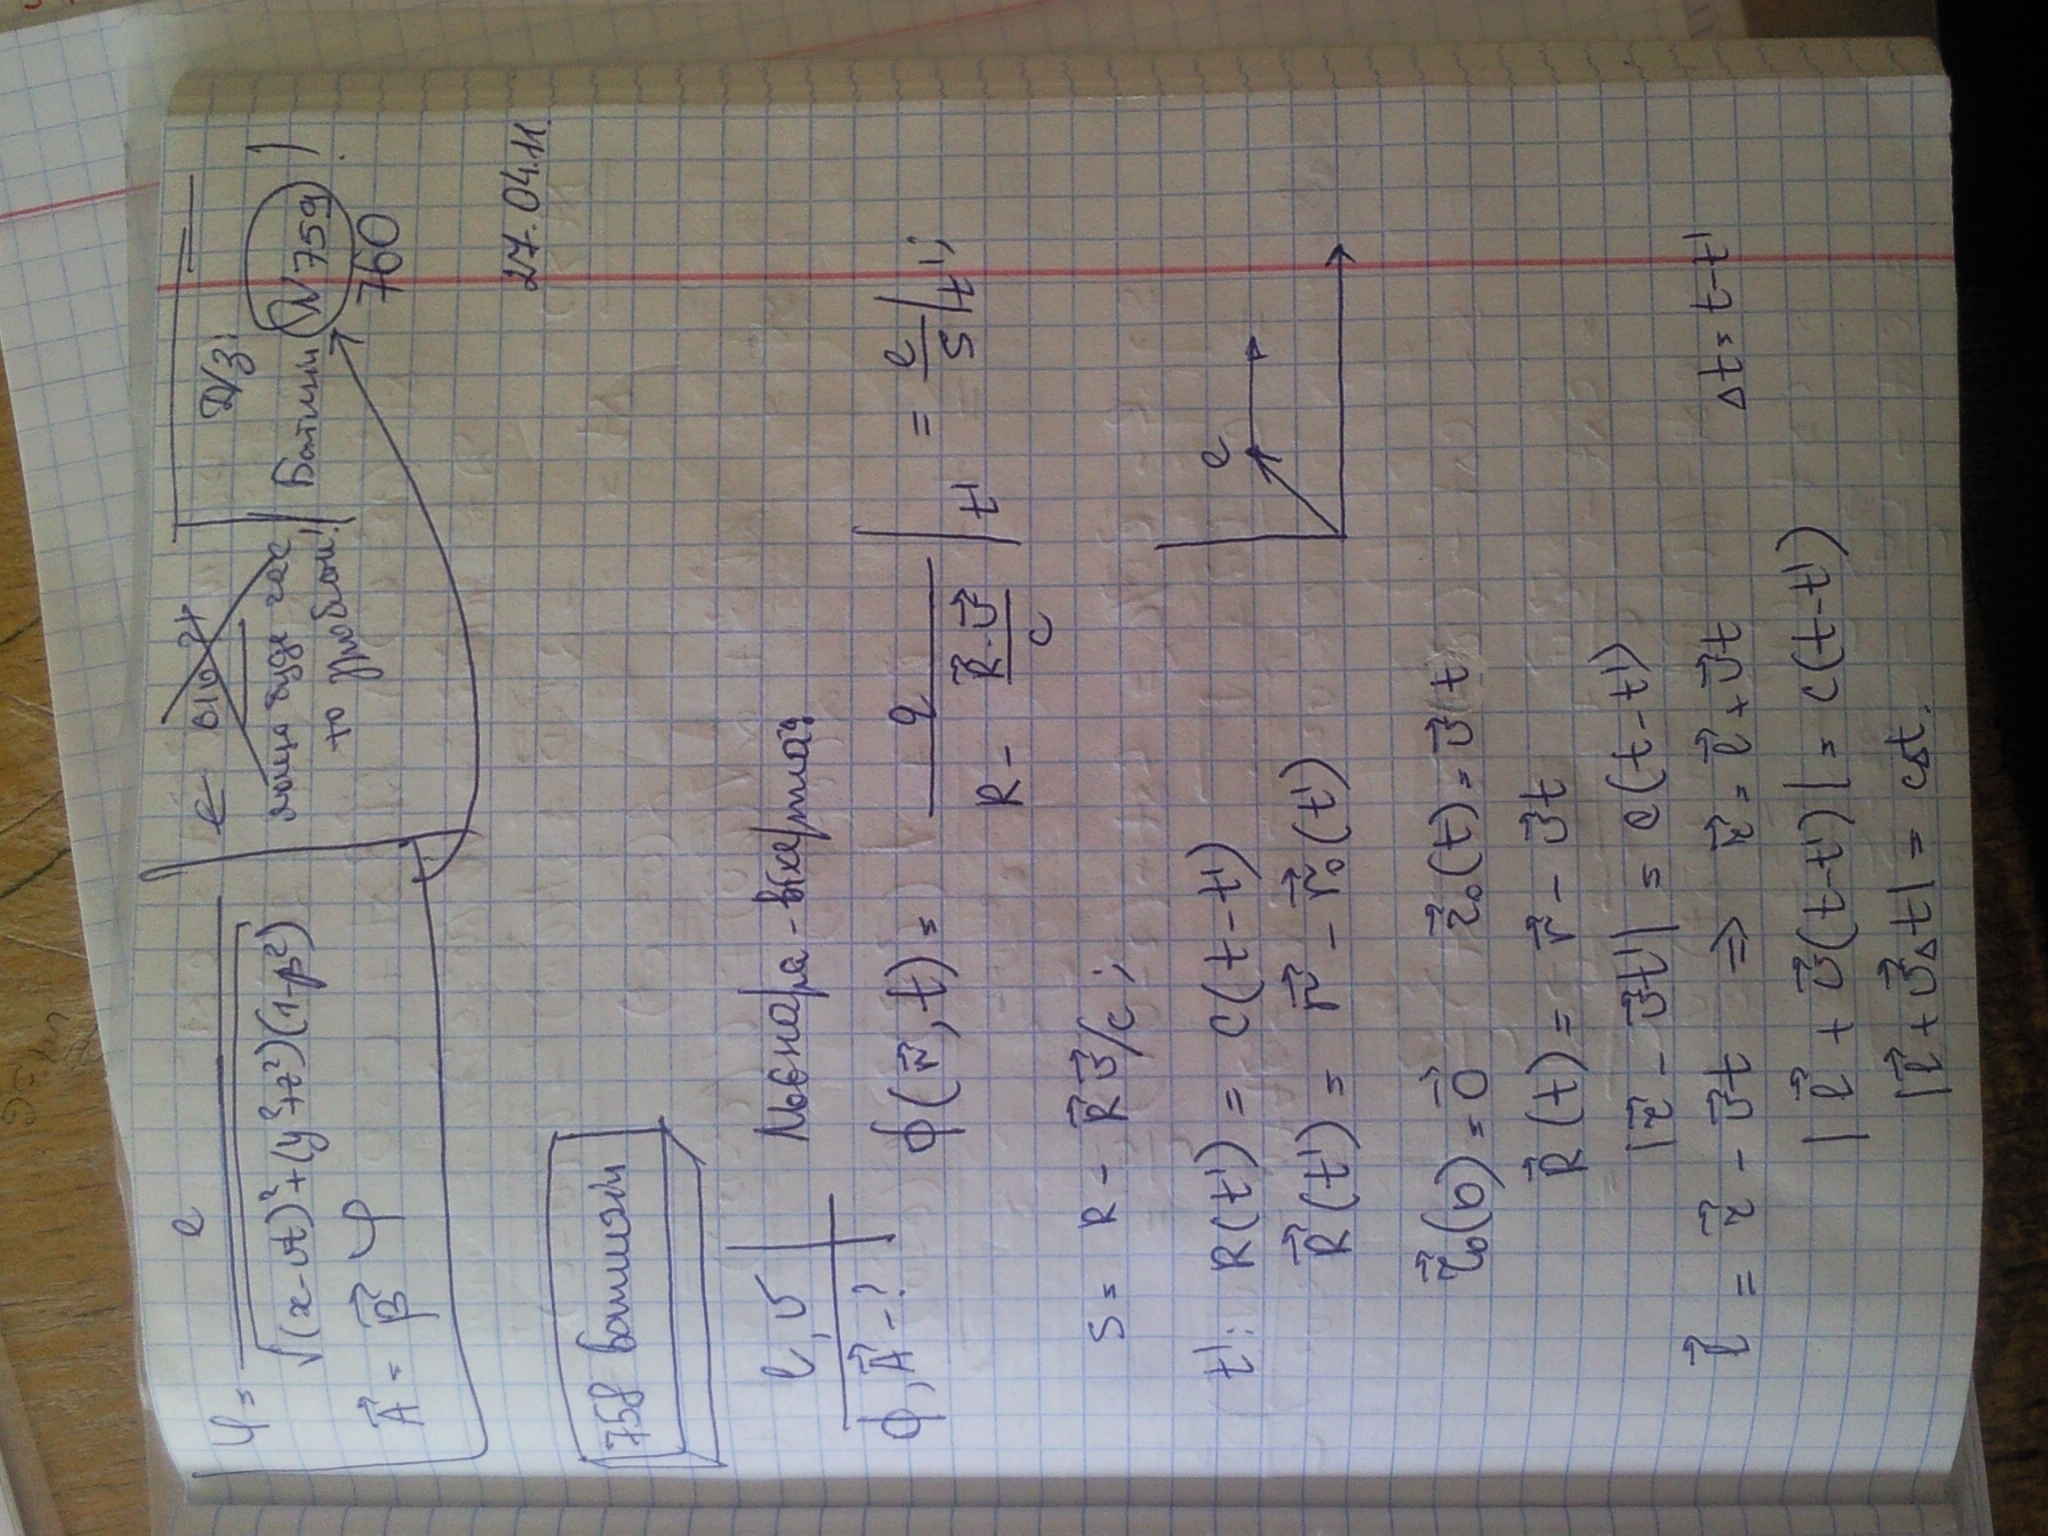 φ = e / √((x-vt)²+(y²+z²)(1-β²))
A⃗ = β⃗ φ
Д/з:
Батыгин N 759
760
27.04.11.
758 Батыгин
e, v
ϕ, A⃗ - ?
Лиенара-Вихерта
ϕ(r⃗, t) = q / (R - R⃗·v⃗/c) |t' = e/S |t';
S = R - R⃗v⃗/c;
t': R(t') = c(t-t')
R⃗(t') = r⃗ - r⃗₀(t')
e
r⃗₀(0) = 0⃗ r⃗₀(t) = v⃗ t
R⃗(t) = r⃗ - v⃗t
|r⃗ - v⃗t'| = c(t-t')
l⃗ = r⃗ - v⃗t ⇒ r⃗ = l⃗ + v⃗t Δt = t-t'
|l⃗ + v⃗(t-t')| = c(t-t')
|l⃗ + v⃗Δt| = cΔt.